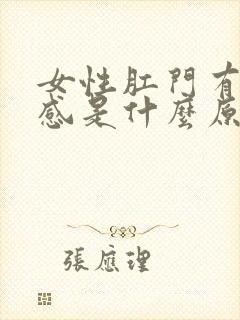 女性肛門有
感是什麼原
張應理